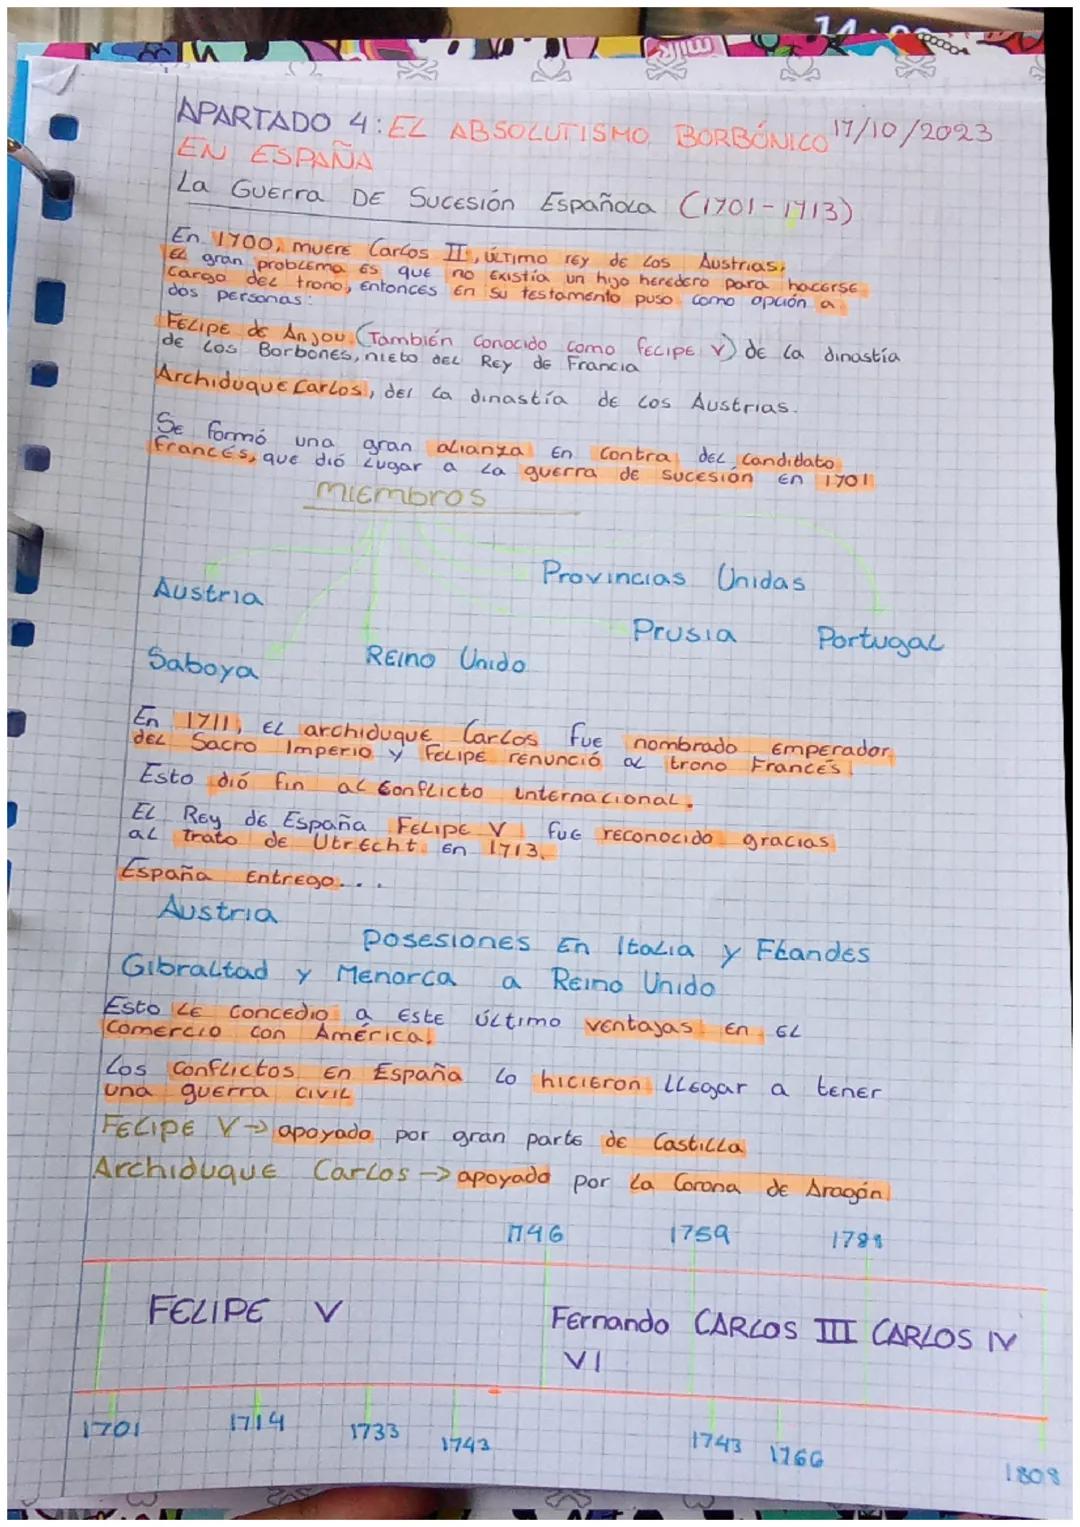 APARTADO 4: EL ABSOLUTISMO BORBÓNICO 17/10/2023
EN ESPAÑA
La Guerra DE Sucesión Española (1701-1713)
En 1700, muere Carlos II, último rey de los Austrias,
El gran problema es que no existía un hijo heredero para hacerse
cargo del trono, entonces en su testamento puso como opción a
dos personas:
Felipe de Anjou (También conocido como Felipe V) de la dinastía
de los Borbones, nieto del Rey de Francia
Archiduque Carlos, del la dinastía de los Austrias.
Se formó una gran alianza en contra del candidato
Francés, que dió lugar a la guerra de sucesión en 1701
miembros
Provincias Unidas
Austria
Prusia Portugal
Saboya Reino Unido
En 1711, el archiduque Carlos fue nombrado emperador
del Sacro Imperio y Felipe renunció al trono Francés.
Esto dió fin al conflicto internacional.
El Rey de España Felipe V fue reconocido gracias
al trato de Utrecht en 1713.
España entrego...
Austria
posesiones en Italia y Flandes
Gibraltad y Menorca a Reino Unido
Esto le concedio a este último ventajas en el
comercio con América.
Los conflictos en España lo hicieron llegar a tener
una guerra civil
Felipe V → apoyado por gran parte de Castilla
Archiduque Carlos → apoyado por la Corona de Aragón
1746 1759
FELIPE V Fernando CARLOS III CARLOS IV
VI
1701 1714 1733 1743 1743 1766 1808